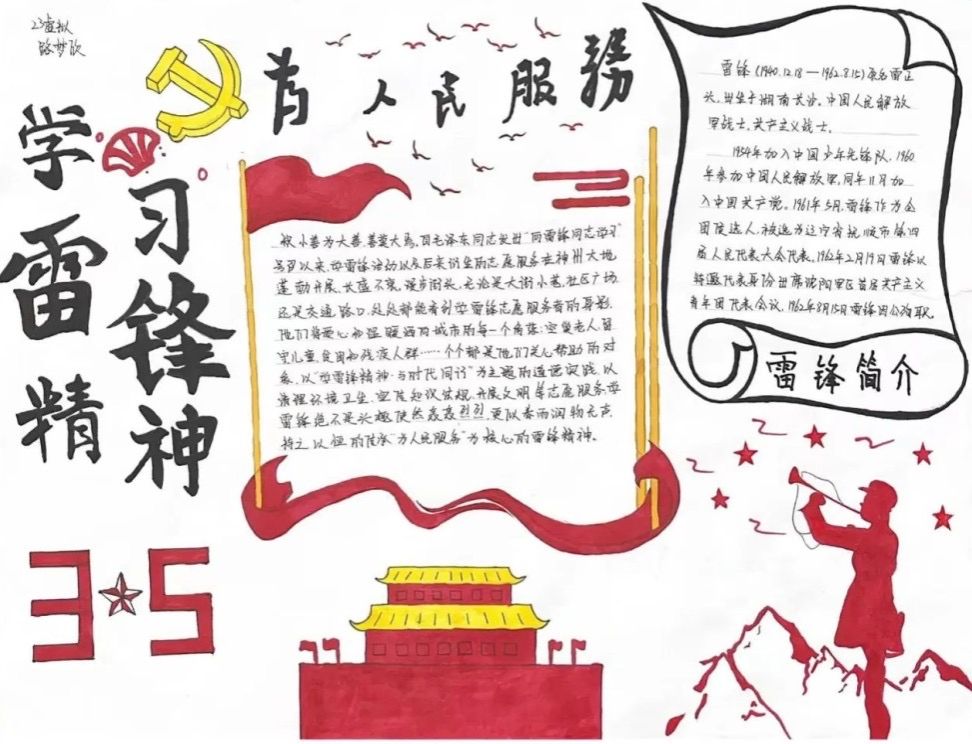 23虚拟
路梦欣
学习
雷锋
精神
为人民服務
雷锋（1940.12.18—1962.8.15）原名雷正
兴，出生于湖南长沙，中国人民解放
军战士，共产主义战士。
1954年加入中国少年先锋队，1960
年参加中国人民解放军，同年11月加
入中国共产党。1961年5月，雷锋作为全
团候选人，被选为辽宁省抚顺市第四
届人民代表大会代表。1962年2月19日雷锋以
特邀代表身份出席沈阳军区首届共产主义
青年团代表会议，1962年8月15日雷锋因公殉职。
雷锋简介
积小善为大善，善莫大焉，自毛泽东同志发出“向雷锋同志学习”
号召以来，学雷锋活动以及后来衍生的志愿服务在神州大地
蓬勃开展，长盛不衰，漫步街头，无论是大街小巷，社区广场
还是交通路口，处处都能看到学雷锋志愿服务者的身影，
他们将爱心和温暖洒向城市的每一个角落：空巢老人、留
守儿童、贫困和残疾人群……个个都是他们关心帮助的对
象，以“学雷锋精神·与时代同行”为主题的道德实践，以
清理环境卫生，宣传知识法规，开展文明等志愿服务，学
雷锋绝不是兴趣使然轰轰烈烈，更似春雨润物无声，
持之以恒的传承“为人民服务”为核心的雷锋精神。
3 5